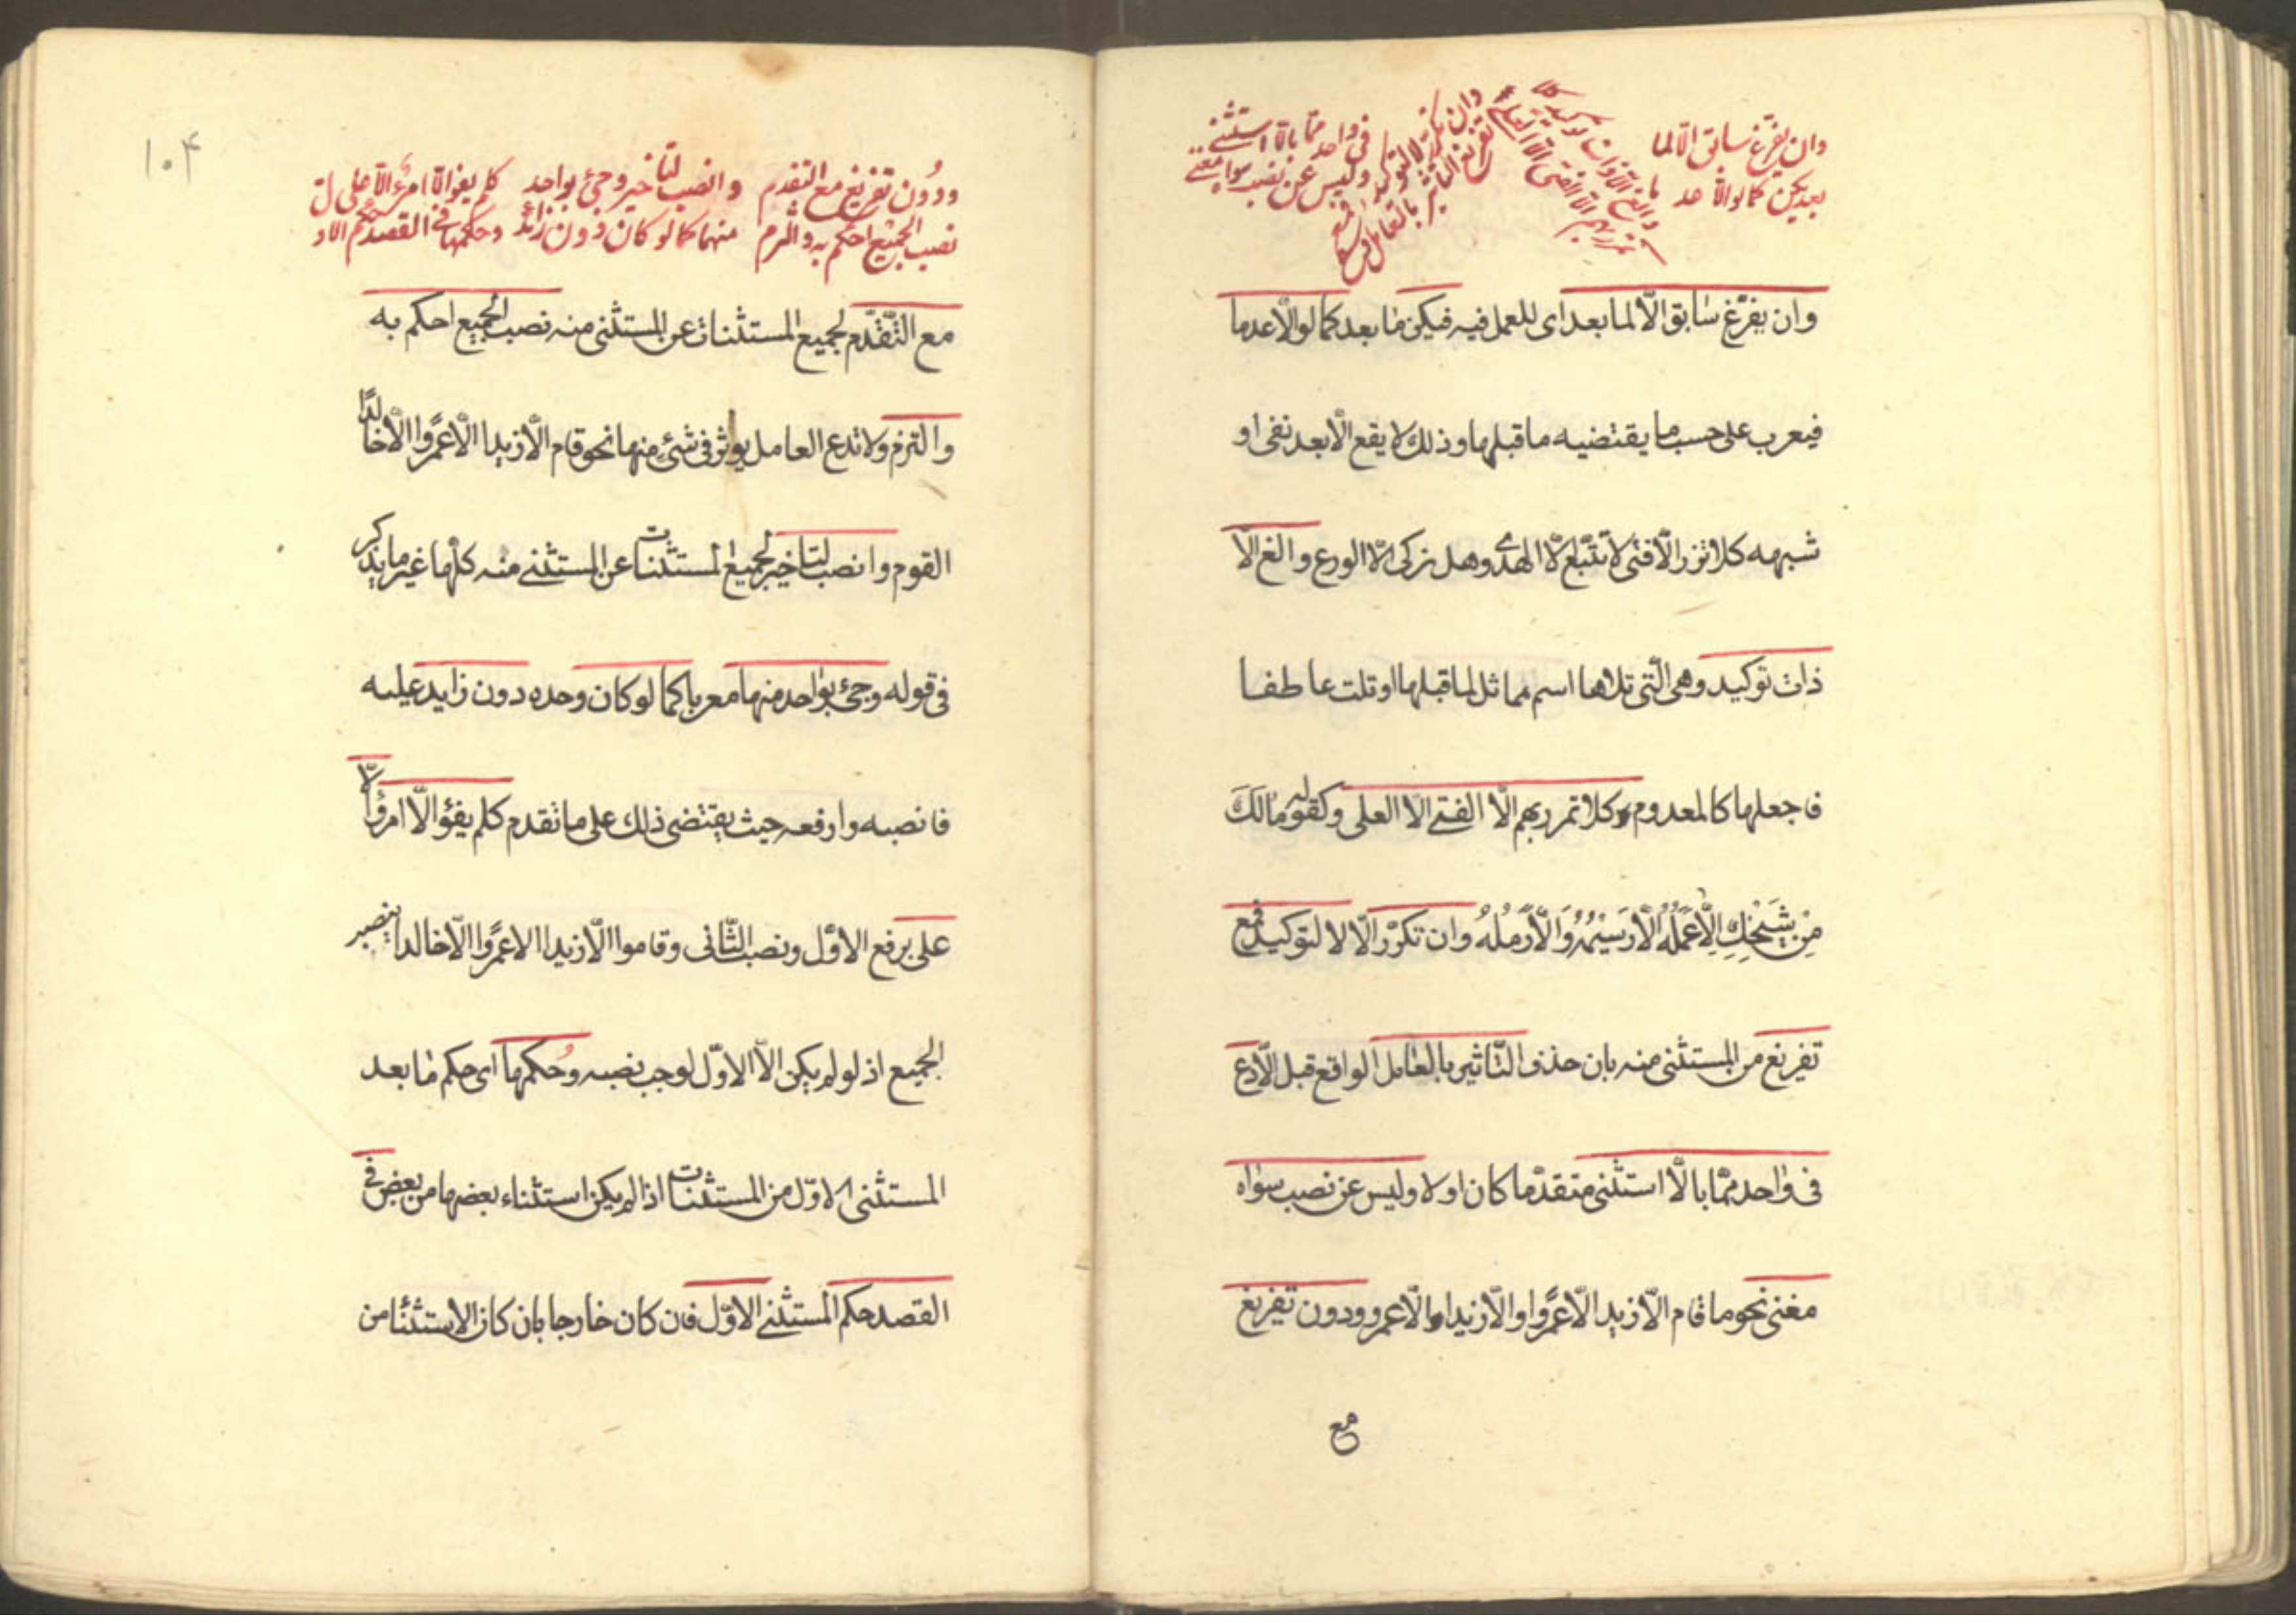 وان يفرغ سابق الا لما
بعد يكن كما لو الا عدما
والغ الا ذات توكيد كلا
تمرر بهم الا الفتى الا العلا
وان تكرر لا لتوكيد فمع
تفريغ التاثير بالعامل دع
فى واحد مما بالا استثنى
وليس عن نصب سواه مغنى
وان يفرّغ سٰابق الّا لما بعد اى للعمل فيه فيكن مٰا بعد كما لو الّا عدما
فيعرب على حسب ما يقتضيه ما قبلها وذلك لا يقع الّا بعد نفى او
شبهه كلا تزر الّا فتى لا تتّبع الّا الهدى وهل زكى الّا الورع والغ الّا
ذات توكيد وهى الّتى تلاها اسم مماثل لما قبلها او تلت عاطفا
فاجعلها كالمعدوم كلا تمرر بهم الّا الفتى الّا العلى وكقوله مٰالَكَ
مِنْ شَيْخِكَ اِلّا عَمَلُهُ اِلّا رَسيمُهُ وَاِلّا رَمَلُهُ وان تكرّر الّا لا لتوكيد فمع
تفريغ من المستثنى منه بان حذف التّاثير بالعٰامل الواقع قبل الّا دع
فى وٰاحد ممّا بالّا استثنى متقدّما كان او لا وليس عن نصب سوٰاه
مغنى نحو ما قام الّا زيد الّا عمروا والّا زيدا والّا عمرو ودون تفريغ
مع
١٠۴
ودُون تفريغ مع التقدم
نصب الجميع احكم به والتزم
وانصب لتاخير وجئ بواحد
منها كما لو كان دون زائد
كلم يفوا الّا امرئ الّا على
وحكمها فى القصد حكم الاول
مع التّقدّم لجميع المستثنات عن المستثنى منه نصب الجميع احكم به
والتزم ولا تدع العامل يوثر فى شئ منها نحو قام الّا زيدا الّا عمروا الّا خالدًا
القوم وانصب لتاخير لجميع المستثنات عن المستثنى منه كلّها غير ما يذكر
فى قوله وجئ بوٰاحد منها معربا كما لو كان وحده دون زايد عليه
فانصبه وارفعه حيث يقتضى ذلك على ما تقدم كلم يفؤ الّا امرؤ الّا
على برفع الاوّل ونصب الثّانى وقاموا الّا زيدا الا عمروا الّا خالدا بنصب
الجميع اذ لو لم يكن الّا الاوّل لوجب نصبه وحُكمها اى حكم مٰا بعد
المستثنى الاوّل من المستثنات اذا لم يكن استثناء بعضها من بعض فى
القصد حكم المستثنى الاوّل فان كان خارجا بان كان الاستثنٰاء من